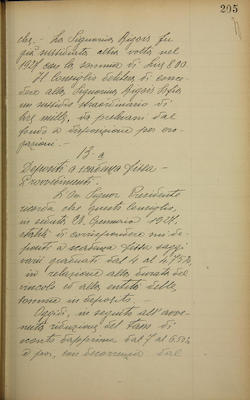 205
che. - La Signorina Rigois fu
già sussidiata altra volta nel
1927 con la somma di Lire 800.
Il Consiglio delibera di conce-
dere alla Signorina Rigois Sofia
un sussidio straordinario di
Lire mille, da prelevarsi dal
fondo a disposizione per ero-
gazioni. -
13. a
Depositi a scadenza fissa -
Provvedimenti. -
Il Signor Presidente
ricorda che questo Consiglio,
in seduta 28 Gennaio 1927,
stabilì di corrispondere nei de-
positi a scadenza fissa saggi
varii graduati dal 4 al 4,75%
in relazione alla durata del
vincolo ed alla entità delle
somme in deposito. -
Oggidì, in seguito all'avve-
nuta riduzione del tasso di
sconto dapprima dal 7 al 6.50%
e poi, con decorrenza dal